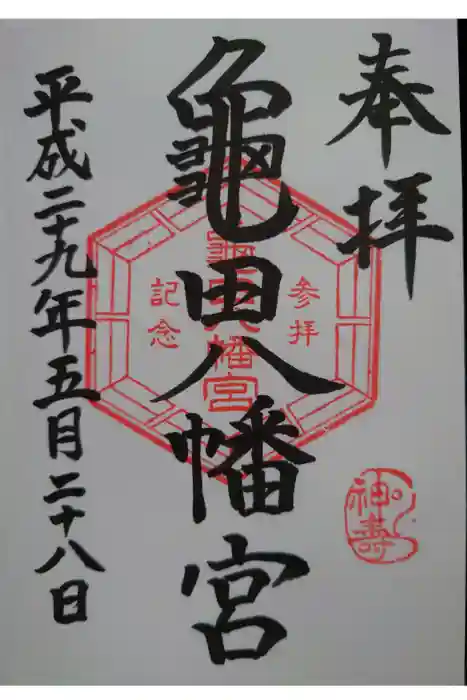 奉拝
龜田八幡宮
平成二十九年五月二十八日
参拝
龜田八幡宮
記念
神壽